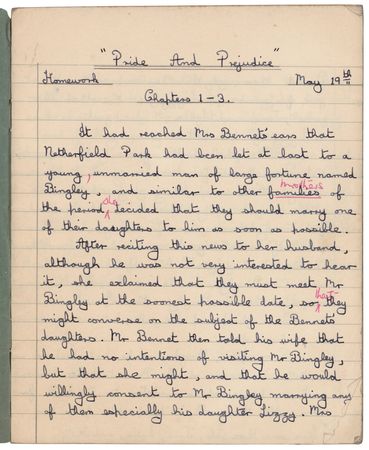 "Pride And Prejudice"
Homework May 19th
Chapters 1-3.
It had reached Mrs Bennet's ears that
Netherfield Park had been let at last to a
young, unmarried man of large fortune named
mothers
Bingley, and similar to other families of
she
the period, decided that they should marry one
of their daughters to him as soon as possible.
After reciting this news to her husband,
although he was not very interested to hear
it, she explained that they must meet Mr
that
Bingley at the soonest possible date, so, they
might converse on the subject of the Bennet's
daughters. Mr Bennet then told his wife that
he had no intentions of visiting Mr Bingley,
but that she might, and that he would
willingly consent to Mr Bingley marrying any
of them especially his daughter Lizzy. Mrs